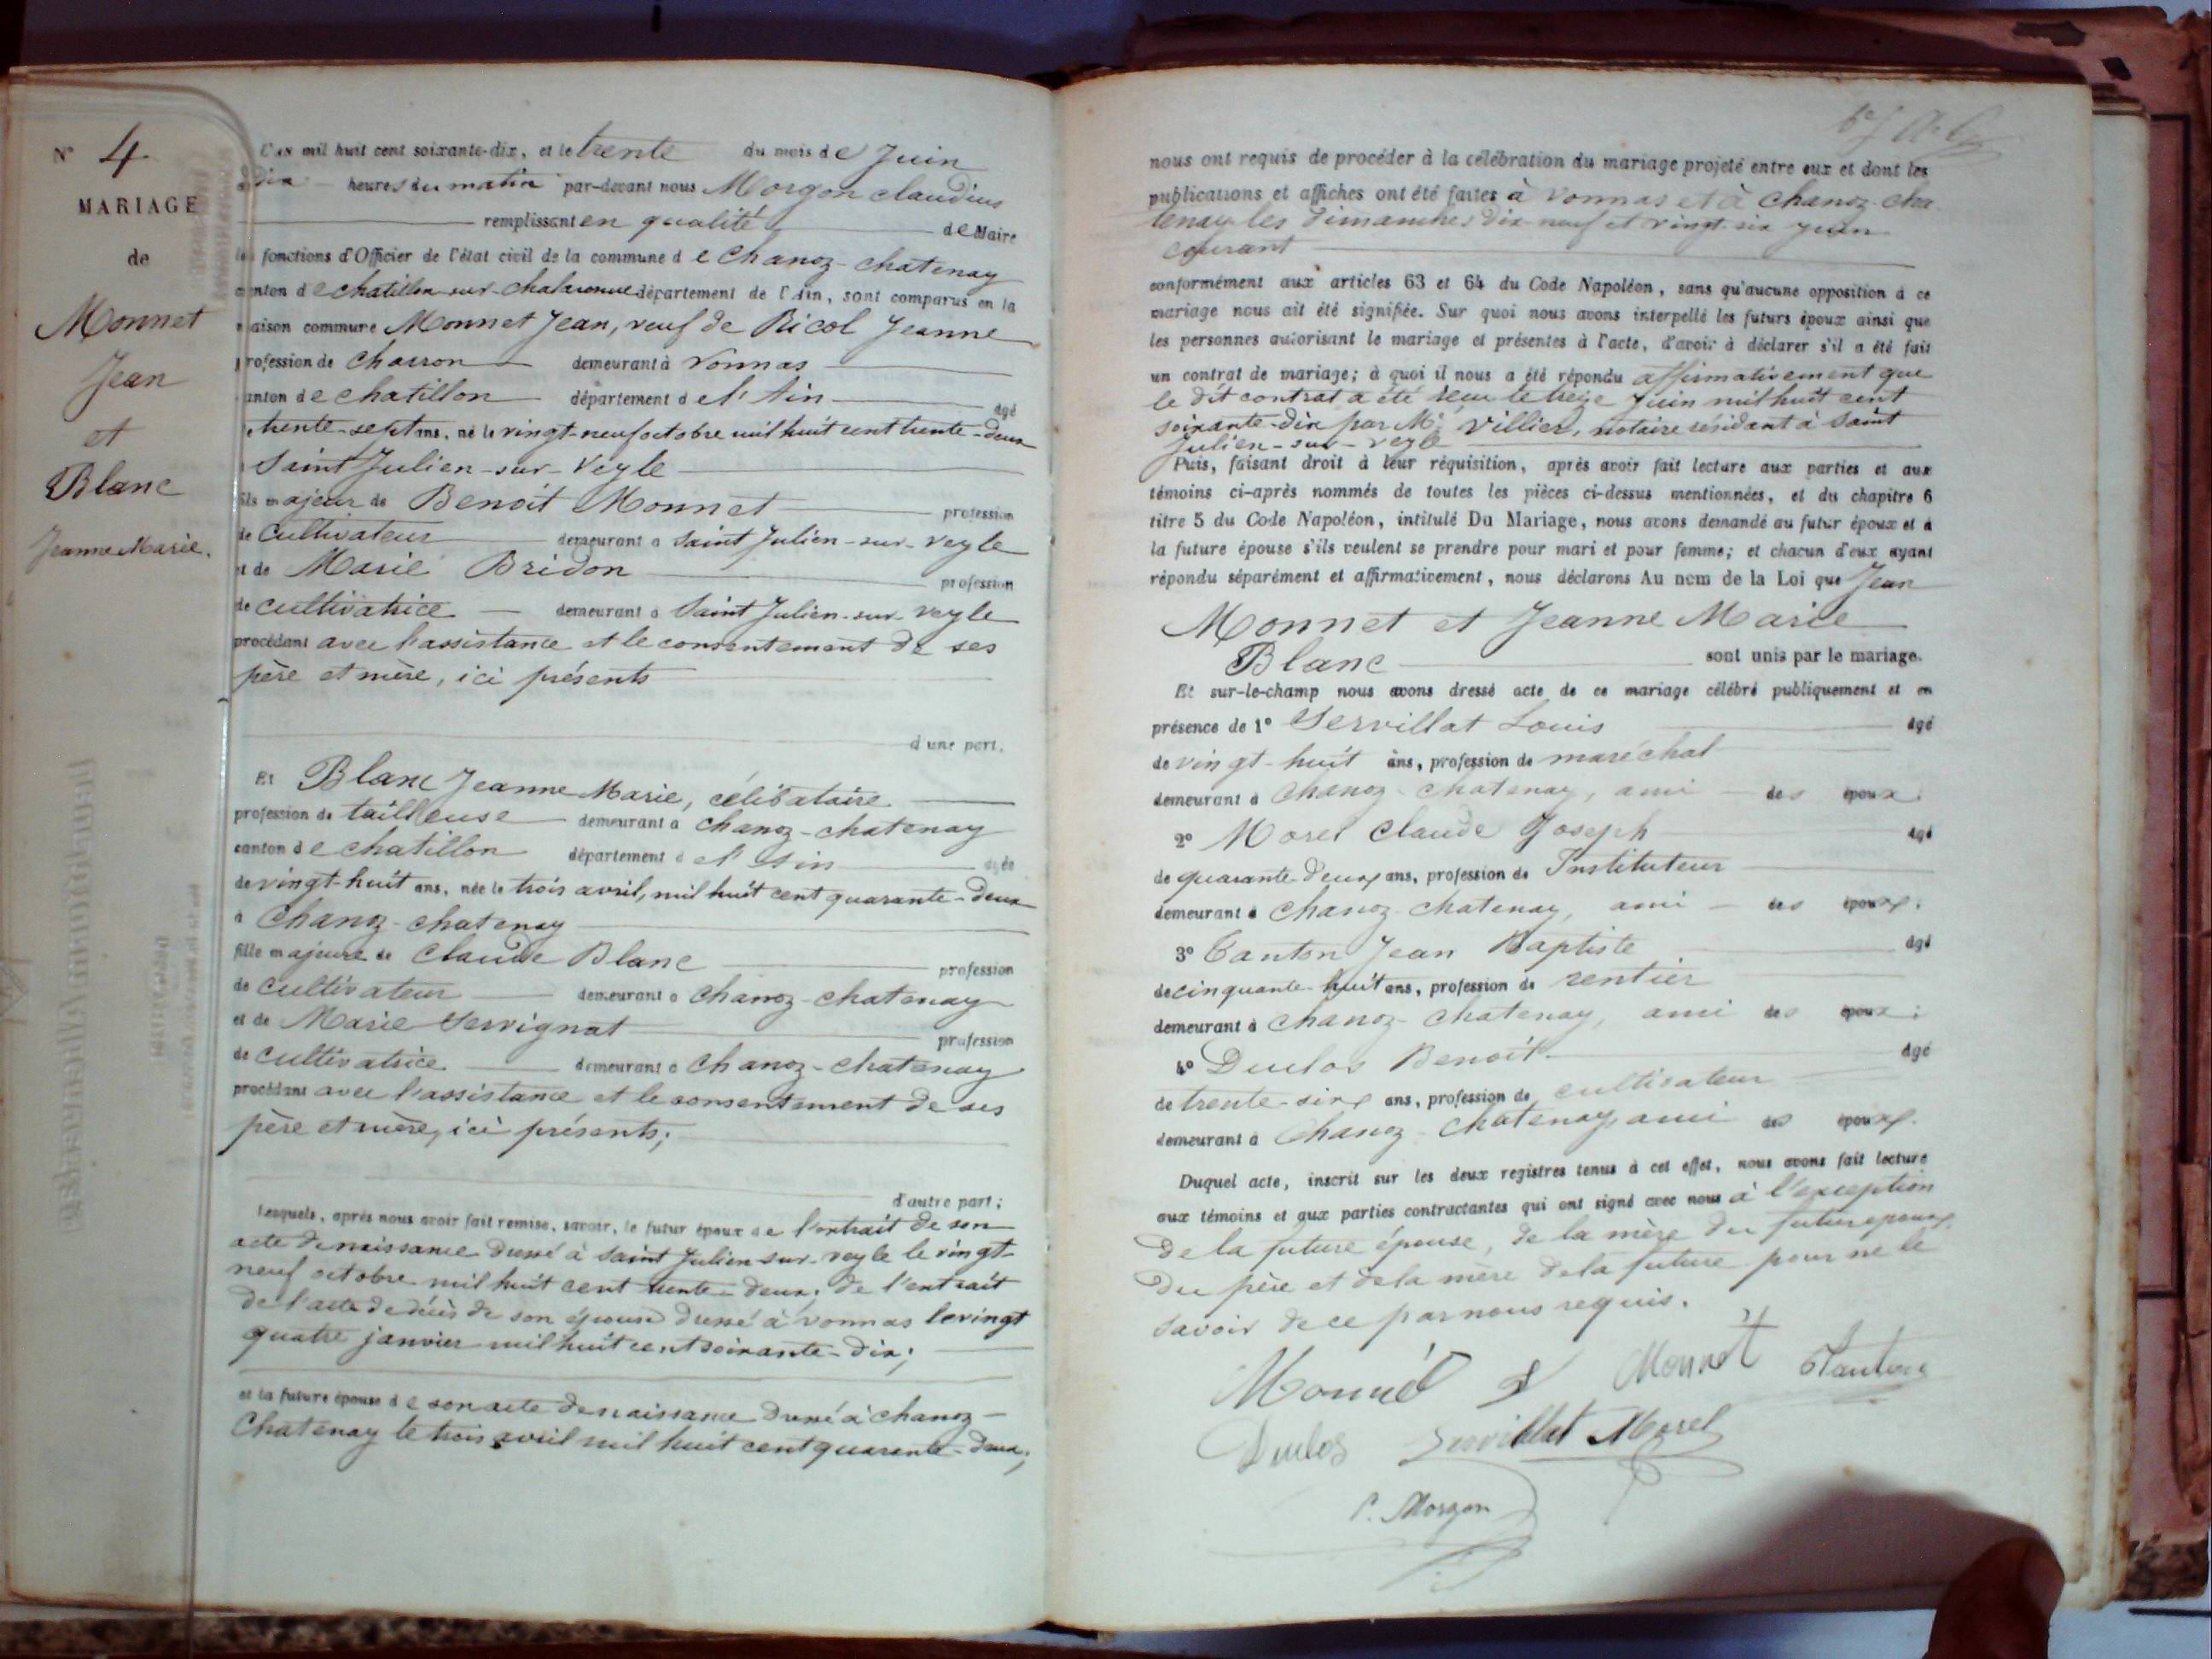 N° 4
MARIAGE
de
Monnet
Jean
et
Blanc
Jeanne Marie.
L'an mil huit cent soixante-dix, et le trente du mois de Juin
à dix heures du matin par-devant nous Morgon claudius
remplissant en qualité de Maire
les fonctions d'Officier de l'état civil de la commune de Chanoz-chatenay
canton de chatillon-sur-chalaronne département de l'Ain, sont comparus en la
maison commune Monnet Jean, veuf de Ricol Jeanne
profession de charron demeurant à Vonnas
canton de chatillon département de l'Ain âgé
de trente-sept ans, né le vingt-neuf octobre mil huit cent trente-deux
à Saint Julien-sur-Veyle
fils majeur de Benoit Monnet profession
de Cultivateur demeurant à Saint Julien-sur-Veyle
et de Marie Bridon profession
de cultivatrice demeurant à Saint Julien-sur-veyle
procédant avec l'assistance et le consentement de ses
père et mère, ici présents
d'une part.
Et Blanc Jeanne Marie, célibataire
profession de tailleuse demeurant à chanoz-chatenay
canton de chatillon département de l'Ain âgée
de vingt-huit ans, née le trois avril, mil huit cent quarante-deux
à Chanoz-chatenay
fille majeure de Claude Blanc profession
de Cultivateur demeurant à Chanoz-chatenay
et de Marie Servignat profession
de Cultivatrice demeurant à Chanoz-chatenay
procédant avec l'assistance et le consentement de ses
père et mère, ici présents;
d'autre part;
Lesquels, après nous avoir fait remise, savoir, le futur époux de l'extrait de son
acte de naissance dressé à Saint Julien-sur-veyle le vingt-
neuf octobre mil huit cent trente-deux; de l'extrait
de l'acte de décès de son épouse dressé à vonnas le vingt
quatre janvier mil huit cent soixante-dix;
et la future épouse de son acte de naissance dressé à chanoz-
Chatenay le trois avril mil huit cent quarante-deux;
nous ont requis de procéder à la célébration du mariage projeté entre eux et dont les
publications et affiches ont été faites à Vonnas et à Chanoz-cha-
tenay les dimanches dix-neuf et vingt-six juin
courant
conformément aux articles 63 et 64 du Code Napoléon, sans qu'aucune opposition à ce
mariage nous ait été signifiée. Sur quoi nous avons interpellé les futurs époux ainsi que
les personnes autorisant le mariage et présentes à l'acte, d'avoir à déclarer s'il a été fait
un contrat de mariage; à quoi il nous a été répondu affirmativement que
le dit contrat a été reçu le treize Juin mil huit cent
soixante-dix par Me Villier, notaire résidant à Saint
Julien-sur-veyle
Puis, faisant droit à leur réquisition, après avoir fait lecture aux parties et aux
témoins ci-après nommés de toutes les pièces ci-dessus mentionnées, et du chapitre 6
titre 5 du Code Napoléon, intitulé Du Mariage, nous avons demandé au futur époux et à
la future épouse s'ils veulent se prendre pour mari et pour femme; et chacun d'eux ayant
répondu séparément et affirmativement, nous déclarons Au nom de la Loi que Jean
Monnet et Jeanne Marie
Blanc sont unis par le mariage.
Et sur-le-champ nous avons dressé acte de ce mariage célébré publiquement et en
présence de 1° Servillat Louis âgé
de vingt-huit ans, profession de maréchal
demeurant à Chanoz-chatenay, ami des époux;
2° Morel Claude Joseph âgé
de quarante-deux ans, profession de Instituteur
demeurant à Chanoz-chatenay, ami des époux;
3° Tanton Jean Baptiste âgé
de cinquante-huit ans, profession de rentier
demeurant à Chanoz-Chatenay, ami des époux;
4° Duclos Benoit âgé
de trente-six ans, profession de cultivateur
demeurant à Chanoz-Chatenay, ami des époux.
Duquel acte, inscrit sur les deux registres tenus à cet effet, nous avons fait lecture
aux témoins et aux parties contractantes qui ont signé avec nous à l'exception
de la future épouse, de la mère du futur époux,
du père et de la mère de la future pour ne le
savoir de ce par nous requis.
Monnet Monnet Tanton
Duclos Servillat Morel
C. Morgon